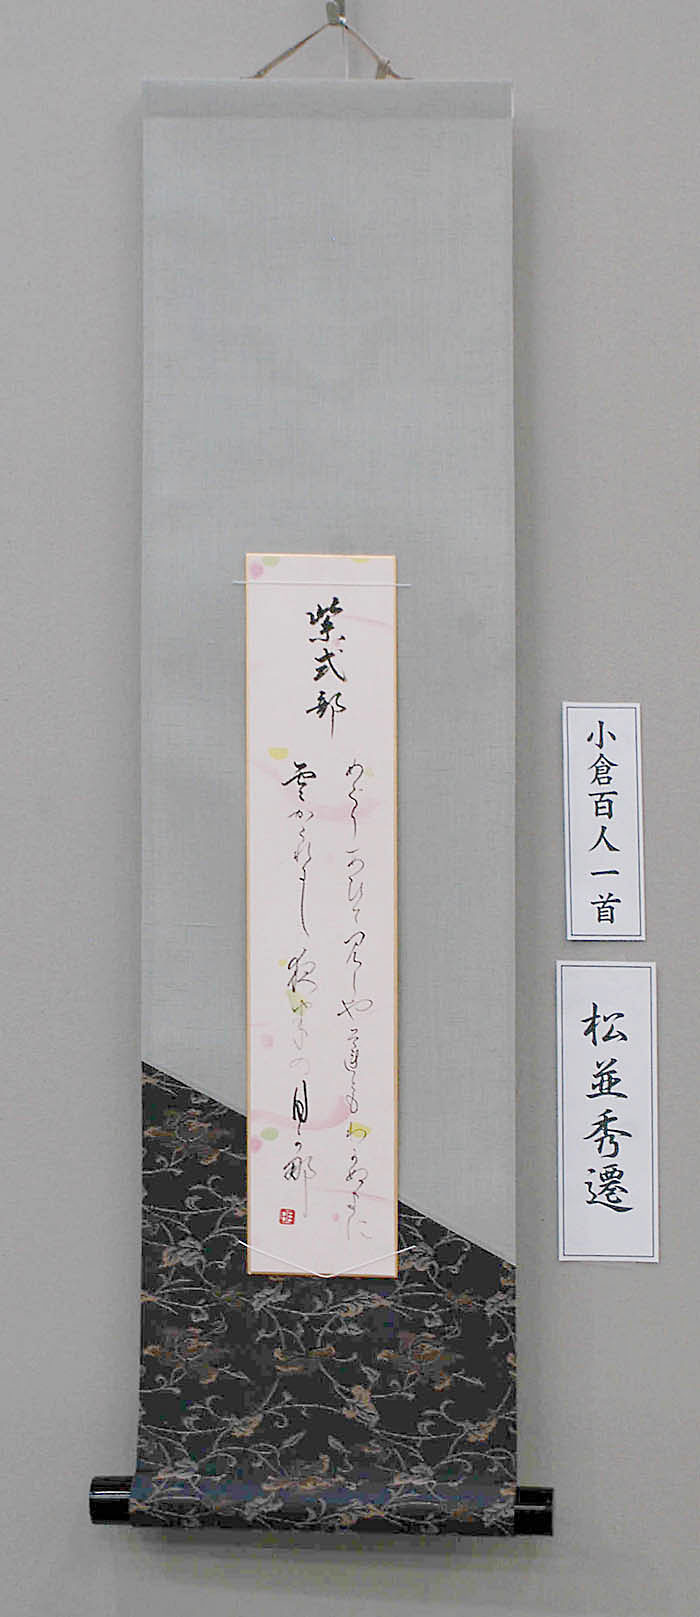 紫式部
めぐりあひて見しやそ連とも わかぬまに
雲かくれにし 夜半の月か那
小倉百人一首
松並秀遷